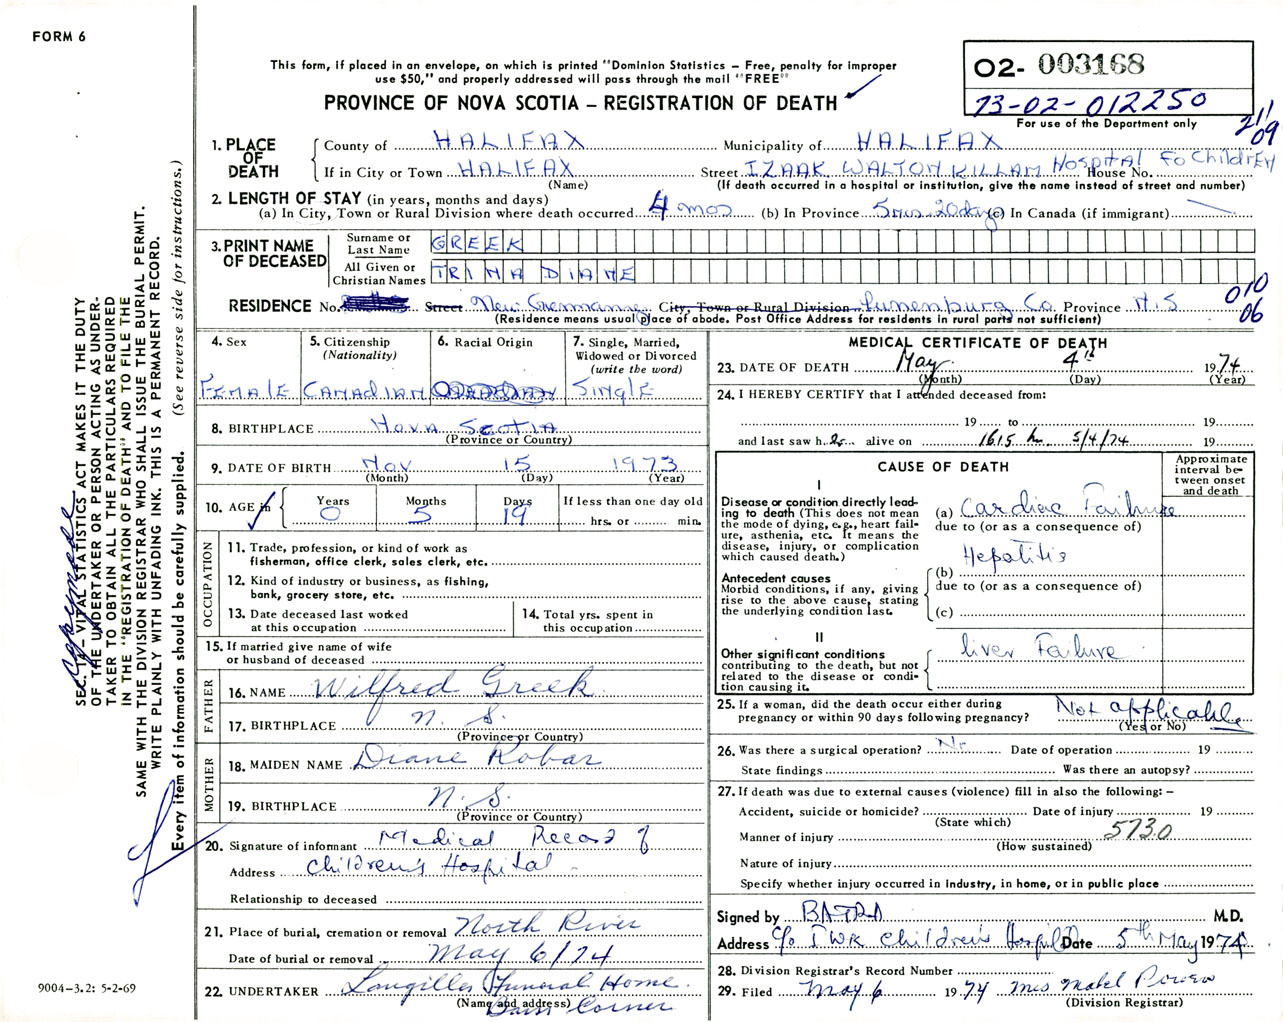 FORM 6
This form, if placed in an envelope, on which is printed "Dominion Statistics – Free, penalty for improper
use $50," and properly addressed will pass through the mail "FREE"
PROVINCE OF NOVA SCOTIA – REGISTRATION OF DEATH
O2- 003168
73-02-012250
For use of the Department only
211
09
1. PLACE OF DEATH
County of HALIFAX Municipality of HALIFAX
If in City or Town HALIFAX Street IZAAK WALTON KILLAM HOSPITAL Fo ChildrEN House No.
(Name) (If death occurred in a hospital or institution, give the name instead of street and number)
2. LENGTH OF STAY (in years, months and days)
(a) In City, Town or Rural Division where death occurred 4 mos (b) In Province 5mos 20days (c) In Canada (if immigrant)
3. PRINT NAME OF DECEASED
Surname or Last Name GREEK
All Given or Christian Names TRINA DIANE
010
06
RESIDENCE No. Street New Germanney City, Town or Rural Division Lunenburg Co. Province N.S
(Residence means usual place of abode. Post Office Address for residents in rural parts not sufficient)
4. Sex FEMALE
5. Citizenship (Nationality) CANADIAN
6. Racial Origin
7. Single, Married, Widowed or Divorced (write the word) SINGLE
8. BIRTHPLACE NOVA SCOTIA
(Province or Country)
9. DATE OF BIRTH NOV 15 1973
(Month) (Day) (Year)
10. AGE in Years 0 Months 5 Days 19 If less than one day old hrs. or min.
OCCUPATION
11. Trade, profession, or kind of work as
fisherman, office clerk, sales clerk, etc.
12. Kind of industry or business, as fishing,
bank, grocery store, etc.
13. Date deceased last worked
at this occupation
14. Total yrs. spent in
this occupation
15. If married give name of wife
or husband of deceased
FATHER
16. NAME Wilfred Greek
17. BIRTHPLACE N. S.
(Province or Country)
MOTHER
18. MAIDEN NAME Diane Robar
19. BIRTHPLACE N. S.
(Province or Country)
20. Signature of informant Medical Record of
Address Children's Hospital
Relationship to deceased
21. Place of burial, cremation or removal North River
Date of burial or removal May 6/74
22. UNDERTAKER Langilles Funeral Home
(Name and address) Barss Corner
MEDICAL CERTIFICATE OF DEATH
23. DATE OF DEATH May 4th 1974
(Month) (Day) (Year)
24. I HEREBY CERTIFY that I attended deceased from:
19 to 19
and last saw h er alive on 1615 h 5/4/74 19
CAUSE OF DEATH
Approximate
interval be-
tween onset
and death
I
Disease or condition directly lead-
ing to death (This does not mean
the mode of dying, e.g., heart fail-
ure, asthenia, etc. It means the
disease, injury, or complication
which caused death.)
(a) Cardiac Failure
due to (or as a consequence of)
Hepatitis
Antecedent causes
Morbid conditions, if any, giving
rise to the above cause, stating
the underlying condition last.
(b)
due to (or as a consequence of)
(c)
II
Other significant conditions
contributing to the death, but not
related to the disease or condi-
tion causing it.
liver Failure
25. If a woman, did the death occur either during
pregnancy or within 90 days following pregnancy? Not applicable
(Yes or No)
26. Was there a surgical operation? No Date of operation 19
State findings Was there an autopsy?
27. If death was due to external causes (violence) fill in also the following: –
Accident, suicide or homicide? Date of injury 19
(State which)
Manner of injury 5730
(How sustained)
Nature of injury
Specify whether injury occurred in industry, in home, or in public place
Signed by BATRA M.D.
Address c/o IWK Children's Hospital Date 5th May 1974
28. Division Registrar's Record Number
29. Filed May 6 1974 Mrs Mabel
(Division Registrar)
SEC. 14 VITAL STATISTICS ACT MAKES IT THE DUTY
OF THE UNDERTAKER OR PERSON ACTING AS UNDER-
TAKER TO OBTAIN ALL THE PARTICULARS REQUIRED
IN THE "REGISTRATION OF DEATH" AND TO FILE THE
SAME WITH THE DIVISION REGISTRAR WHO SHALL ISSUE THE BURIAL PERMIT.
WRITE PLAINLY WITH UNFADING INK. THIS IS A PERMANENT RECORD.
Every item of information should be carefully supplied. (See reverse side for instructions.)
9004-3.2: 5-2-69